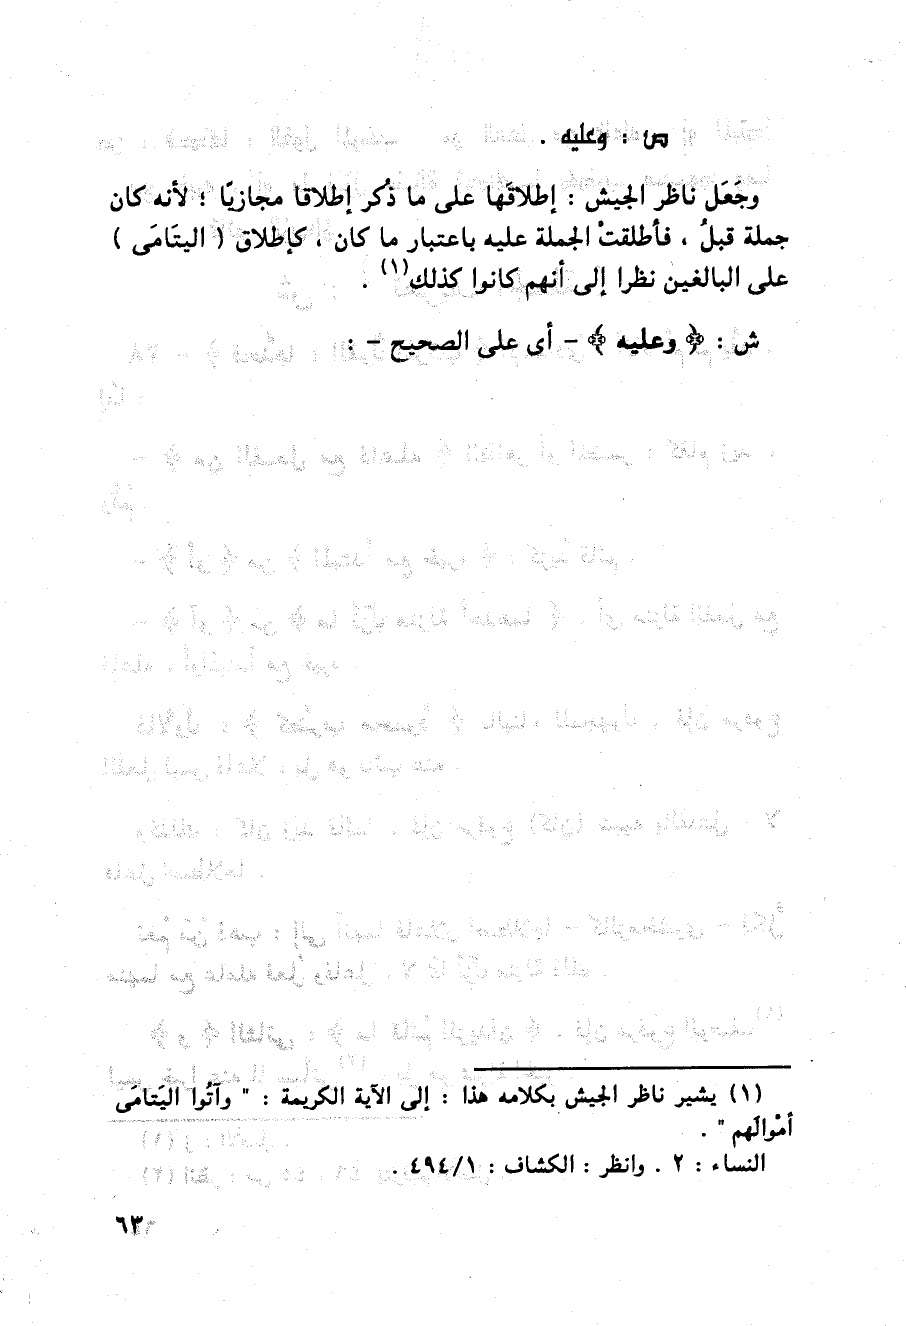 ص : وعليه .
وجَعَل ناظر الجيش : إطلاقَها على ما ذُكر إطلاقا مجازيًا ؛ لأنه كان
جملة قبلُ ، فأطلقتْ الجملة عليه باعتبار ما كان ، كإطلاق ( اليتَامَى )
على البالغين نظرا إلى أنهم كانوا كذلك(١) .
ش : ﴿ وعليه ﴾ – أى على الصحيح – :
(١) يشير ناظر الجيش بكلامه هذا : إلى الآية الكريمة : " وآتُوا اليَتامَى
أمْوالَهم " .
النساء : ٢ . وانظر : الكشاف : ٤٩٤/١ .
٦٣